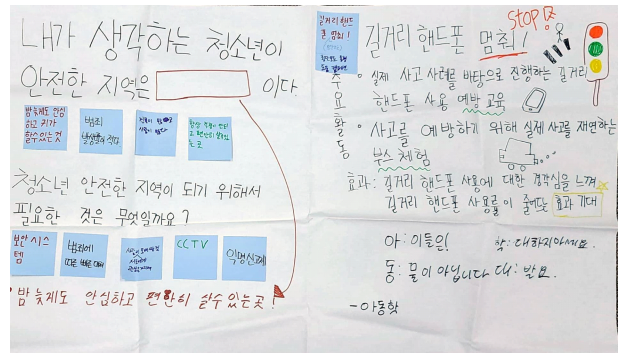 내가 생각하는 청소년이
안전한 지역은 이다.
밤늦게도 안심
하고 귀가
할수있는것
범죄
청소년 안전한 지역이 되기 위해서
필요한 것은 무엇일까요?
보안 시스
템
범죄에
CCTV
익명신고
밤 늦게도 안심하고 편안히 살수 있는 곳!
길거리 핸드
폰 멈춰!
길거리 핸드폰 멈춰!
STOP!
주요활동
실제 사고 사례를 바탕으로 진행하는 길거리
핸드폰 사용 예방 교육
사고를 예방하기 위해 실제 사고를 재연하는
부스 체험
효과: 길거리 핸드폰 사용에 대한 경각심을 느껴
길거리 핸드폰 사용률이 줄어드는 효과 기대
아: 이들은! 학: 대하지마세요.
동: 물이 아닙니다 대: 발요.
-아동학